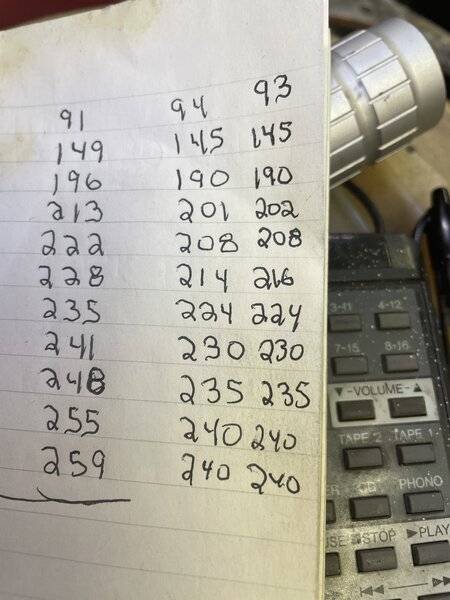 91 94 93
149 145 145
196 190 190
213 201 202
222 208 208
228 214 216
235 224 224
241 230 230
248 235 235
255 240 240
259 240 240
3-11 4-12
7-15 8-16
▼-VOLUME-▲
TAPE 2 TAPE 1
CD PHONO
STOP ▶PLAY